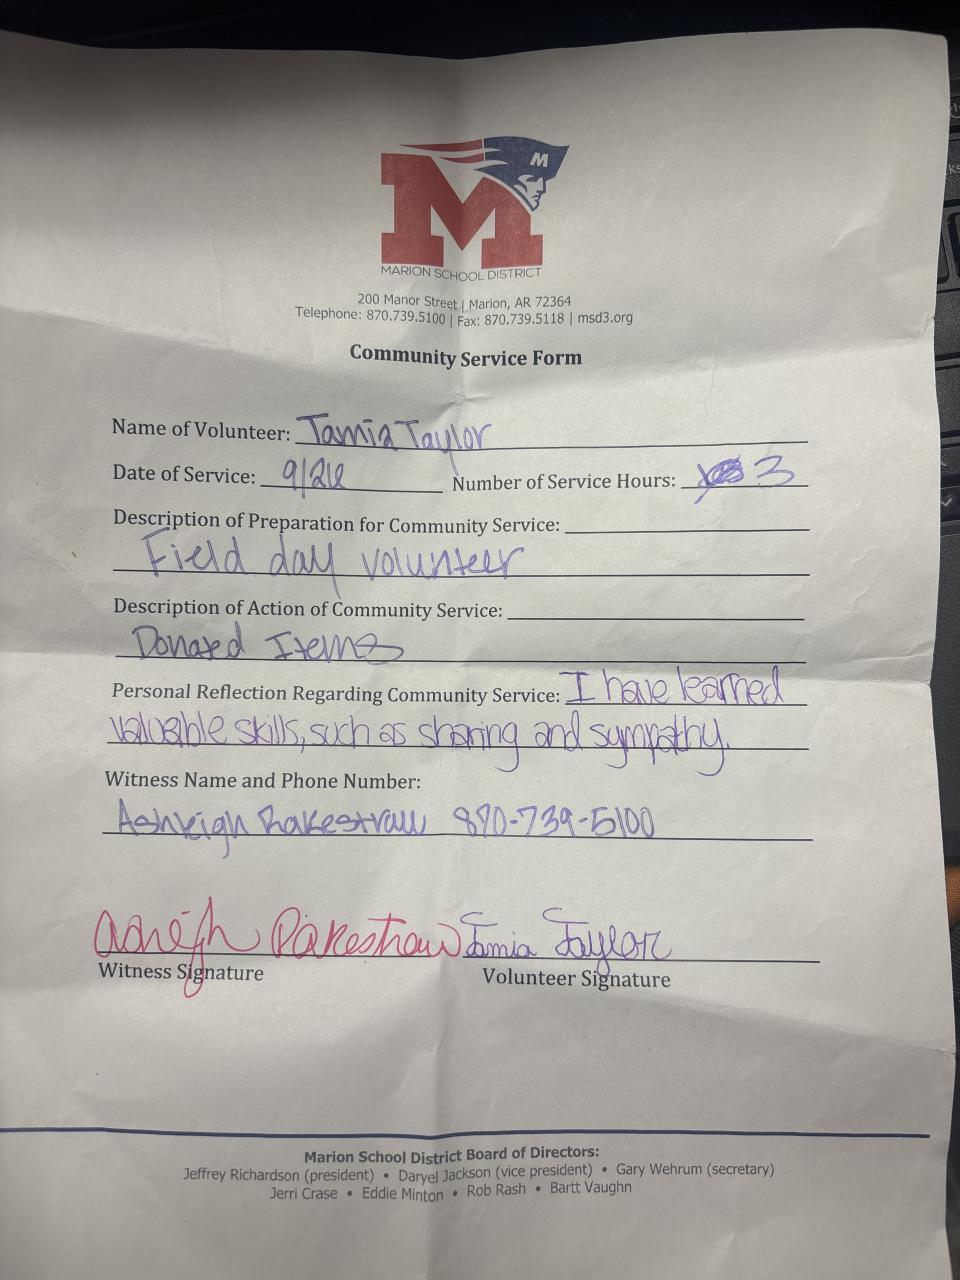 M
MARION SCHOOL DISTRICT
200 Manor Street | Marion, AR 72364
Telephone: 870.739.5100 | Fax: 870.739.5118 | msd3.org
Community Service Form
Name of Volunteer: Tamia Taylor
Date of Service: 9/26 Number of Service Hours: 3
Description of Preparation for Community Service:
Field day volunteer
Description of Action of Community Service:
Donated Items
Personal Reflection Regarding Community Service: I have learned
valuable skills, such as sharing and sympathy.
Witness Name and Phone Number:
Ashleigh Rakestraw 870-739-5100
Ashleigh Rakestraw Tamia Taylor
Witness Signature Volunteer Signature
Marion School District Board of Directors:
Jeffrey Richardson (president) • Daryel Jackson (vice president) • Gary Wehrum (secretary)
Jerri Crase • Eddie Minton • Rob Rash • Bartt Vaughn